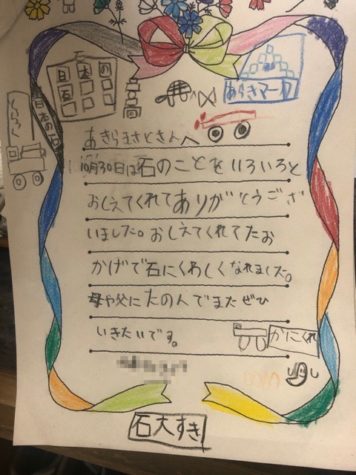 日本の石
日本の石
あらきマーク
あきらまさときんへ
10月30日は石のことをいろいろと
おしえてくれてありがとうござ
いました。おしえてくれてたお
かげで石にくわしくなれました。
母や父にたのんでまたぜひ
いきたいです。
かにくれ
石大すき